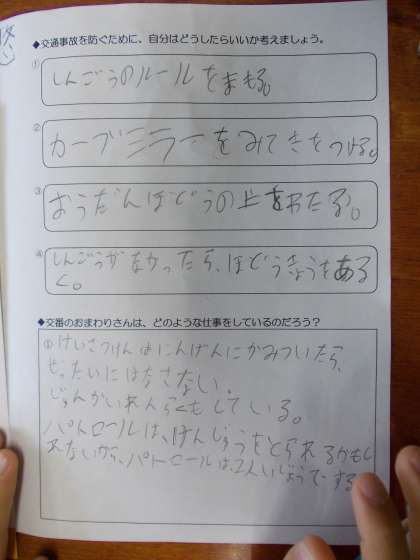 ◆交通事故を防ぐために、自分はどうしたらいいか考えましょう。
① しんごうのルールをまもる。
② カーブミラーをみてきをつける。
③ おうだんほどうの上をわたる。
④ しんごうがなかったら、ほどうきょうをある
く。
◆交番のおまわりさんは、どのような仕事をしているのだろう？
けいさつけんはにんげんにかみついたら、
ぜったいにはなさない。
じゅんかいれんらくもしている。
パトロールは、けんじゅうをとられるかもし
れないから、パトロールは、2人いじょうでする